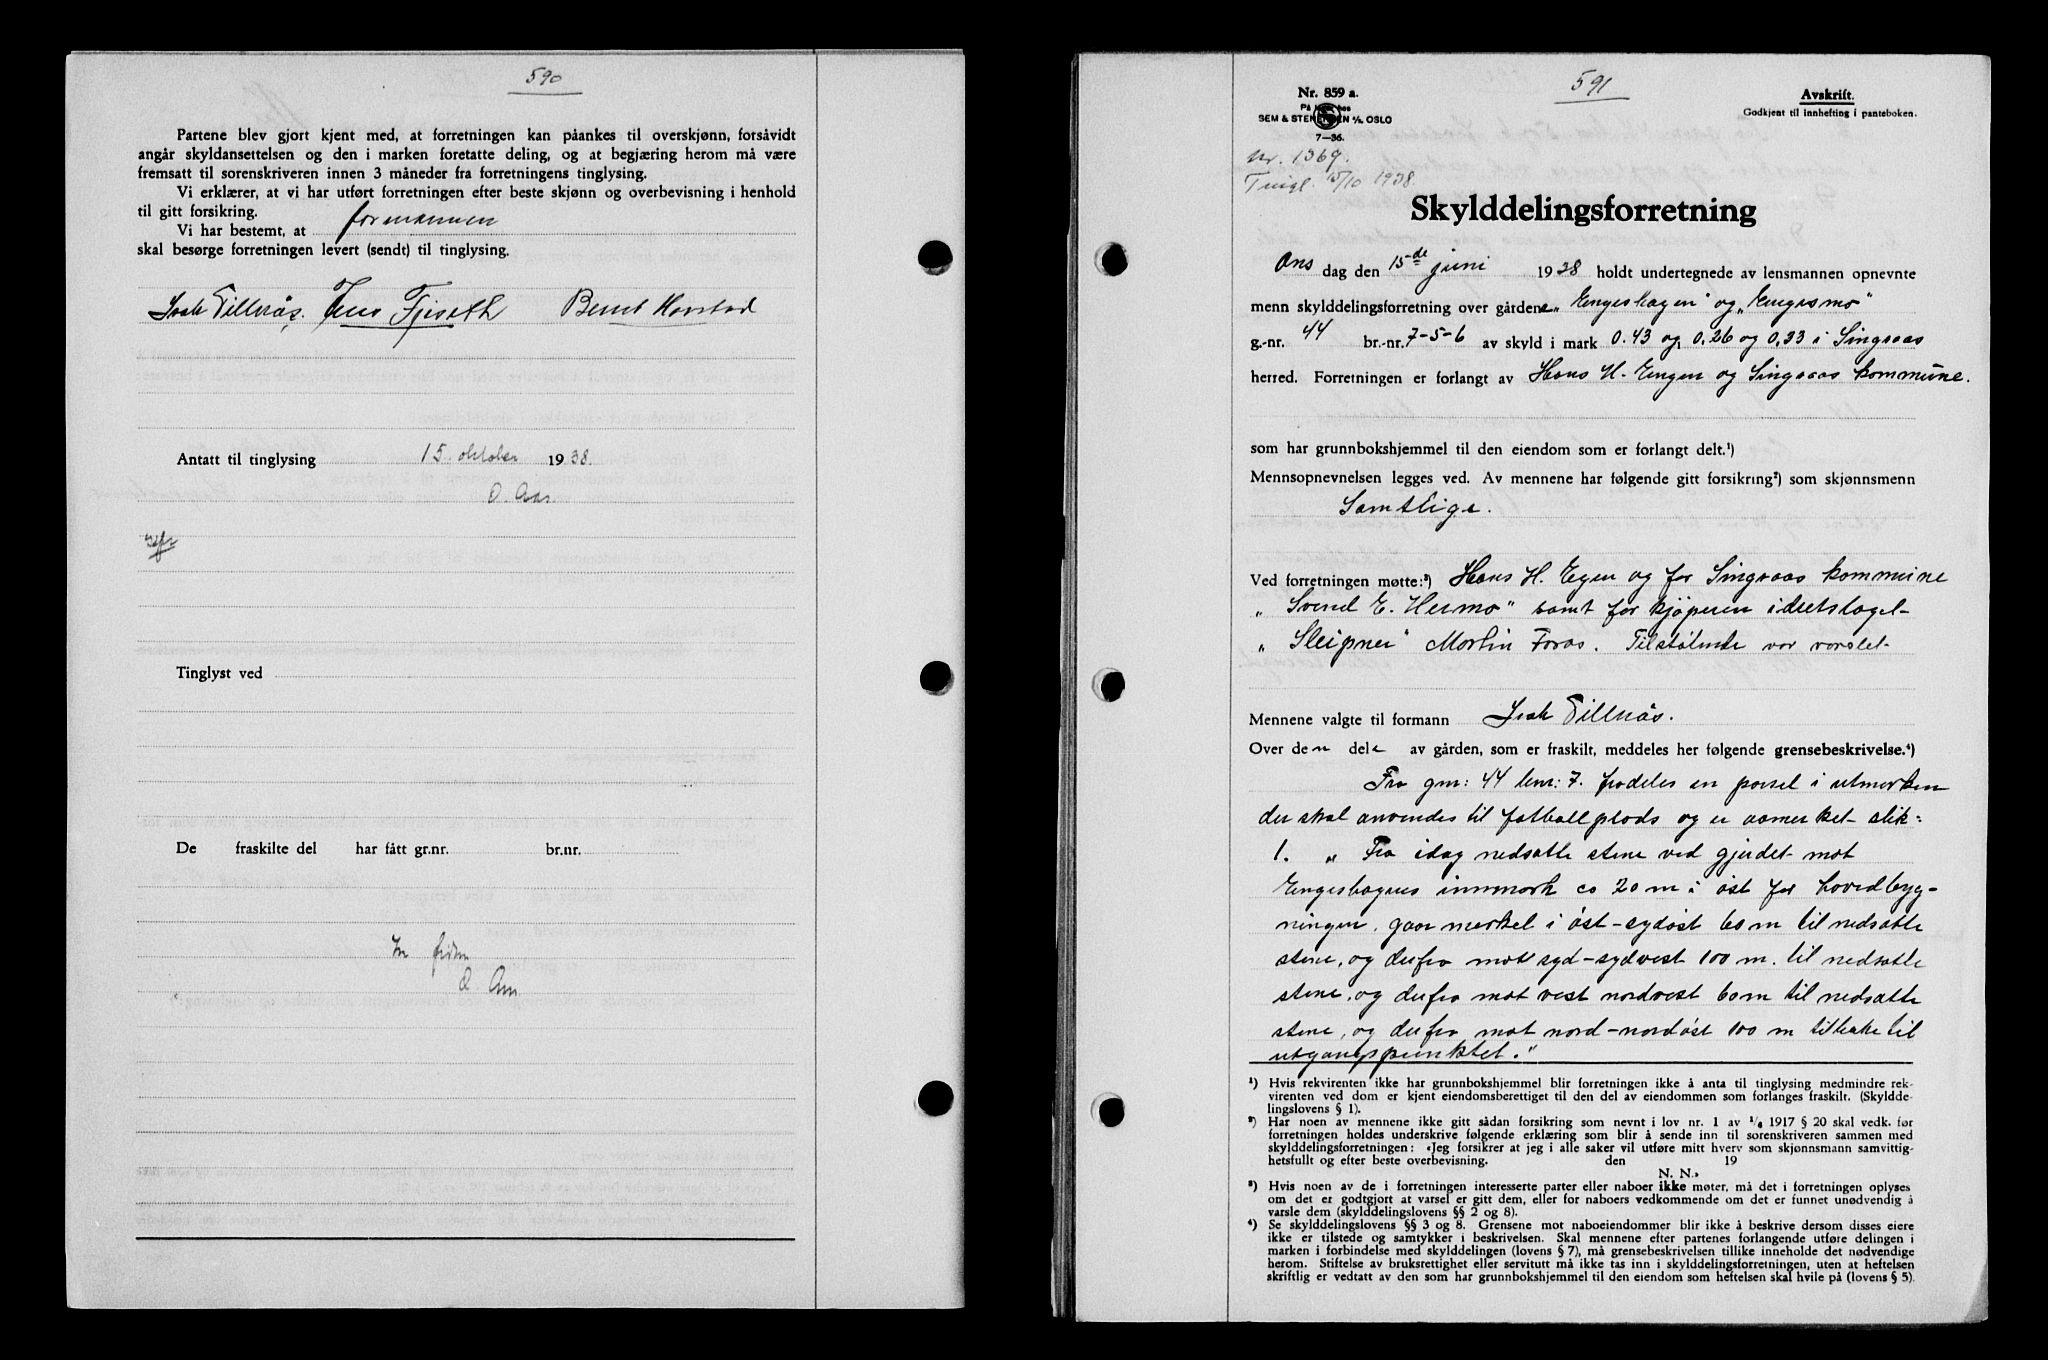 590
Partene blev gjort kjent med, at forretningen kan påankes til overskjønn, forsåvidt
angår skyldansettelsen og den i marken foretatte deling, og at begjæring herom må være
fremsatt til sorenskriveren innen 3 måneder fra forretningens tinglysing.
Vi erklærer, at vi har utført forretningen efter beste skjønn og overbevisning i henhold
til gitt forsikring.
Vi har bestemt, at formannen
skal besørge forretningen levert (sendt) til tinglysing.
Isak Tillnäs. Jens Fjeseth Bernt Havstad
Antatt til tinglysing 15. oktober 1938.
O. Aas.
Tinglyst ved
De fraskilte del har fått gr.nr. br.nr.
O Aas
591
Nr. 859 a.
På lager hos
SEM & STENERSEN A/S, OSLO
7—36.
Avskrift.
Godkjent til innhefting i panteboken.
Nr. 1369.
Tingl. 15/10 1938.
Skylddelingsforretning
Ons dag den 15de juni 1938 holdt undertegnede av lensmannen opnevnte
menn skylddelingsforretning over gårdene „Engeshagen" og „Engesmo"
g.-nr. 44 br.-nr. 7-5-6 av skyld i mark 0.43 og 0,26 og 0,33 i Singsaas
herred. Forretningen er forlangt av Hans H. Engen og Singsaas kommune.
som har grunnbokshjemmel til den eiendom som er forlangt delt.¹)
Mennsopnevnelsen legges ved. Av mennene har følgende gitt forsikring²) som skjønnsmenn
Samtlige.
Ved forretningen møtte:³) Hans H. Egen og for Singsaas kommune
„ Svend E. Hermo" samt for kjøperen idretslaget
„ Sleipner" Martin Foros. Tilstøtende var varslet
Mennene valgte til formann Isak Tillnäs.
Over den dele av gården, som er fraskilt, meddeles her følgende grensebeskrivelse.⁴)
Fra gnr: 44 bnr: 7. fradeles en parsel i utmarken
der skal anvendes til fotballplads og er aamerket slik:
1. „ Fra idag nedsatte stene ved gjerdet mot
Engeshagens innmark ca 20 m i øst for hovedbyg-
ningen, gaar merket i øst-sydøst 60 m til nedsatte
stene, og derfra mot syd-sydvest 100 m. til nedsatte
stene, og derfra mot vest nordvest 60 m til nedsatte
stene, og derfra mot nord-nordøst 100 m tilbake til
utgangspunktet."
¹) Hvis rekvirenten ikke har grunnbokshjemmel blir forretningen ikke å anta til tinglysing medmindre rek-
virenten ved dom er kjent eiendomsberettiget til den del av eiendommen som forlanges fraskilt. (Skyldde-
lingslovens § 1).
²) Har noen av mennene ikke gitt sådan forsikring som nevnt i lov nr. 1 av ¹/₆ 1917 § 20 skal vedk. før
forretningen holdes underskrive følgende erklæring som blir å sende inn til sorenskriveren sammen med
skylddelingsforretningen: «Jeg forsikrer at jeg i alle saker vil utføre mitt hverv som skjønnsmann samvittig-
hetsfullt og efter beste overbevisning. den 19
N. N.»
³) Hvis noen av de i forretningen interesserte parter eller naboer ikke møter, må det i forretningen oplyses
om det er godtgjort at varsel er gitt dem, eller for naboers vedkommende om det er funnet unødvendig å
varsle dem (skylddelingslovens §§ 2 og 8).
⁴) Se skylddelingslovens §§ 3 og 8. Grensene mot naboeiendommer blir ikke å beskrive dersom disses eiere
ikke er tilstede og samtykker i beskrivelsen. Skal mennene efter partenes forlangende utføre delingen i
marken i forbindelse med skylddelingen (lovens § 7), må grensebeskrivelsen tillike inneholde det nødvendige
herom. Stiftelse av bruksrettighet eller servitutt må ikke tas inn i skylddelingsforretningen, uten at heftelsen
skriftlig er vedtatt av den som har grunnbokshjemmel til den eiendom som heftelsen skal hvile på (lovens § 5).